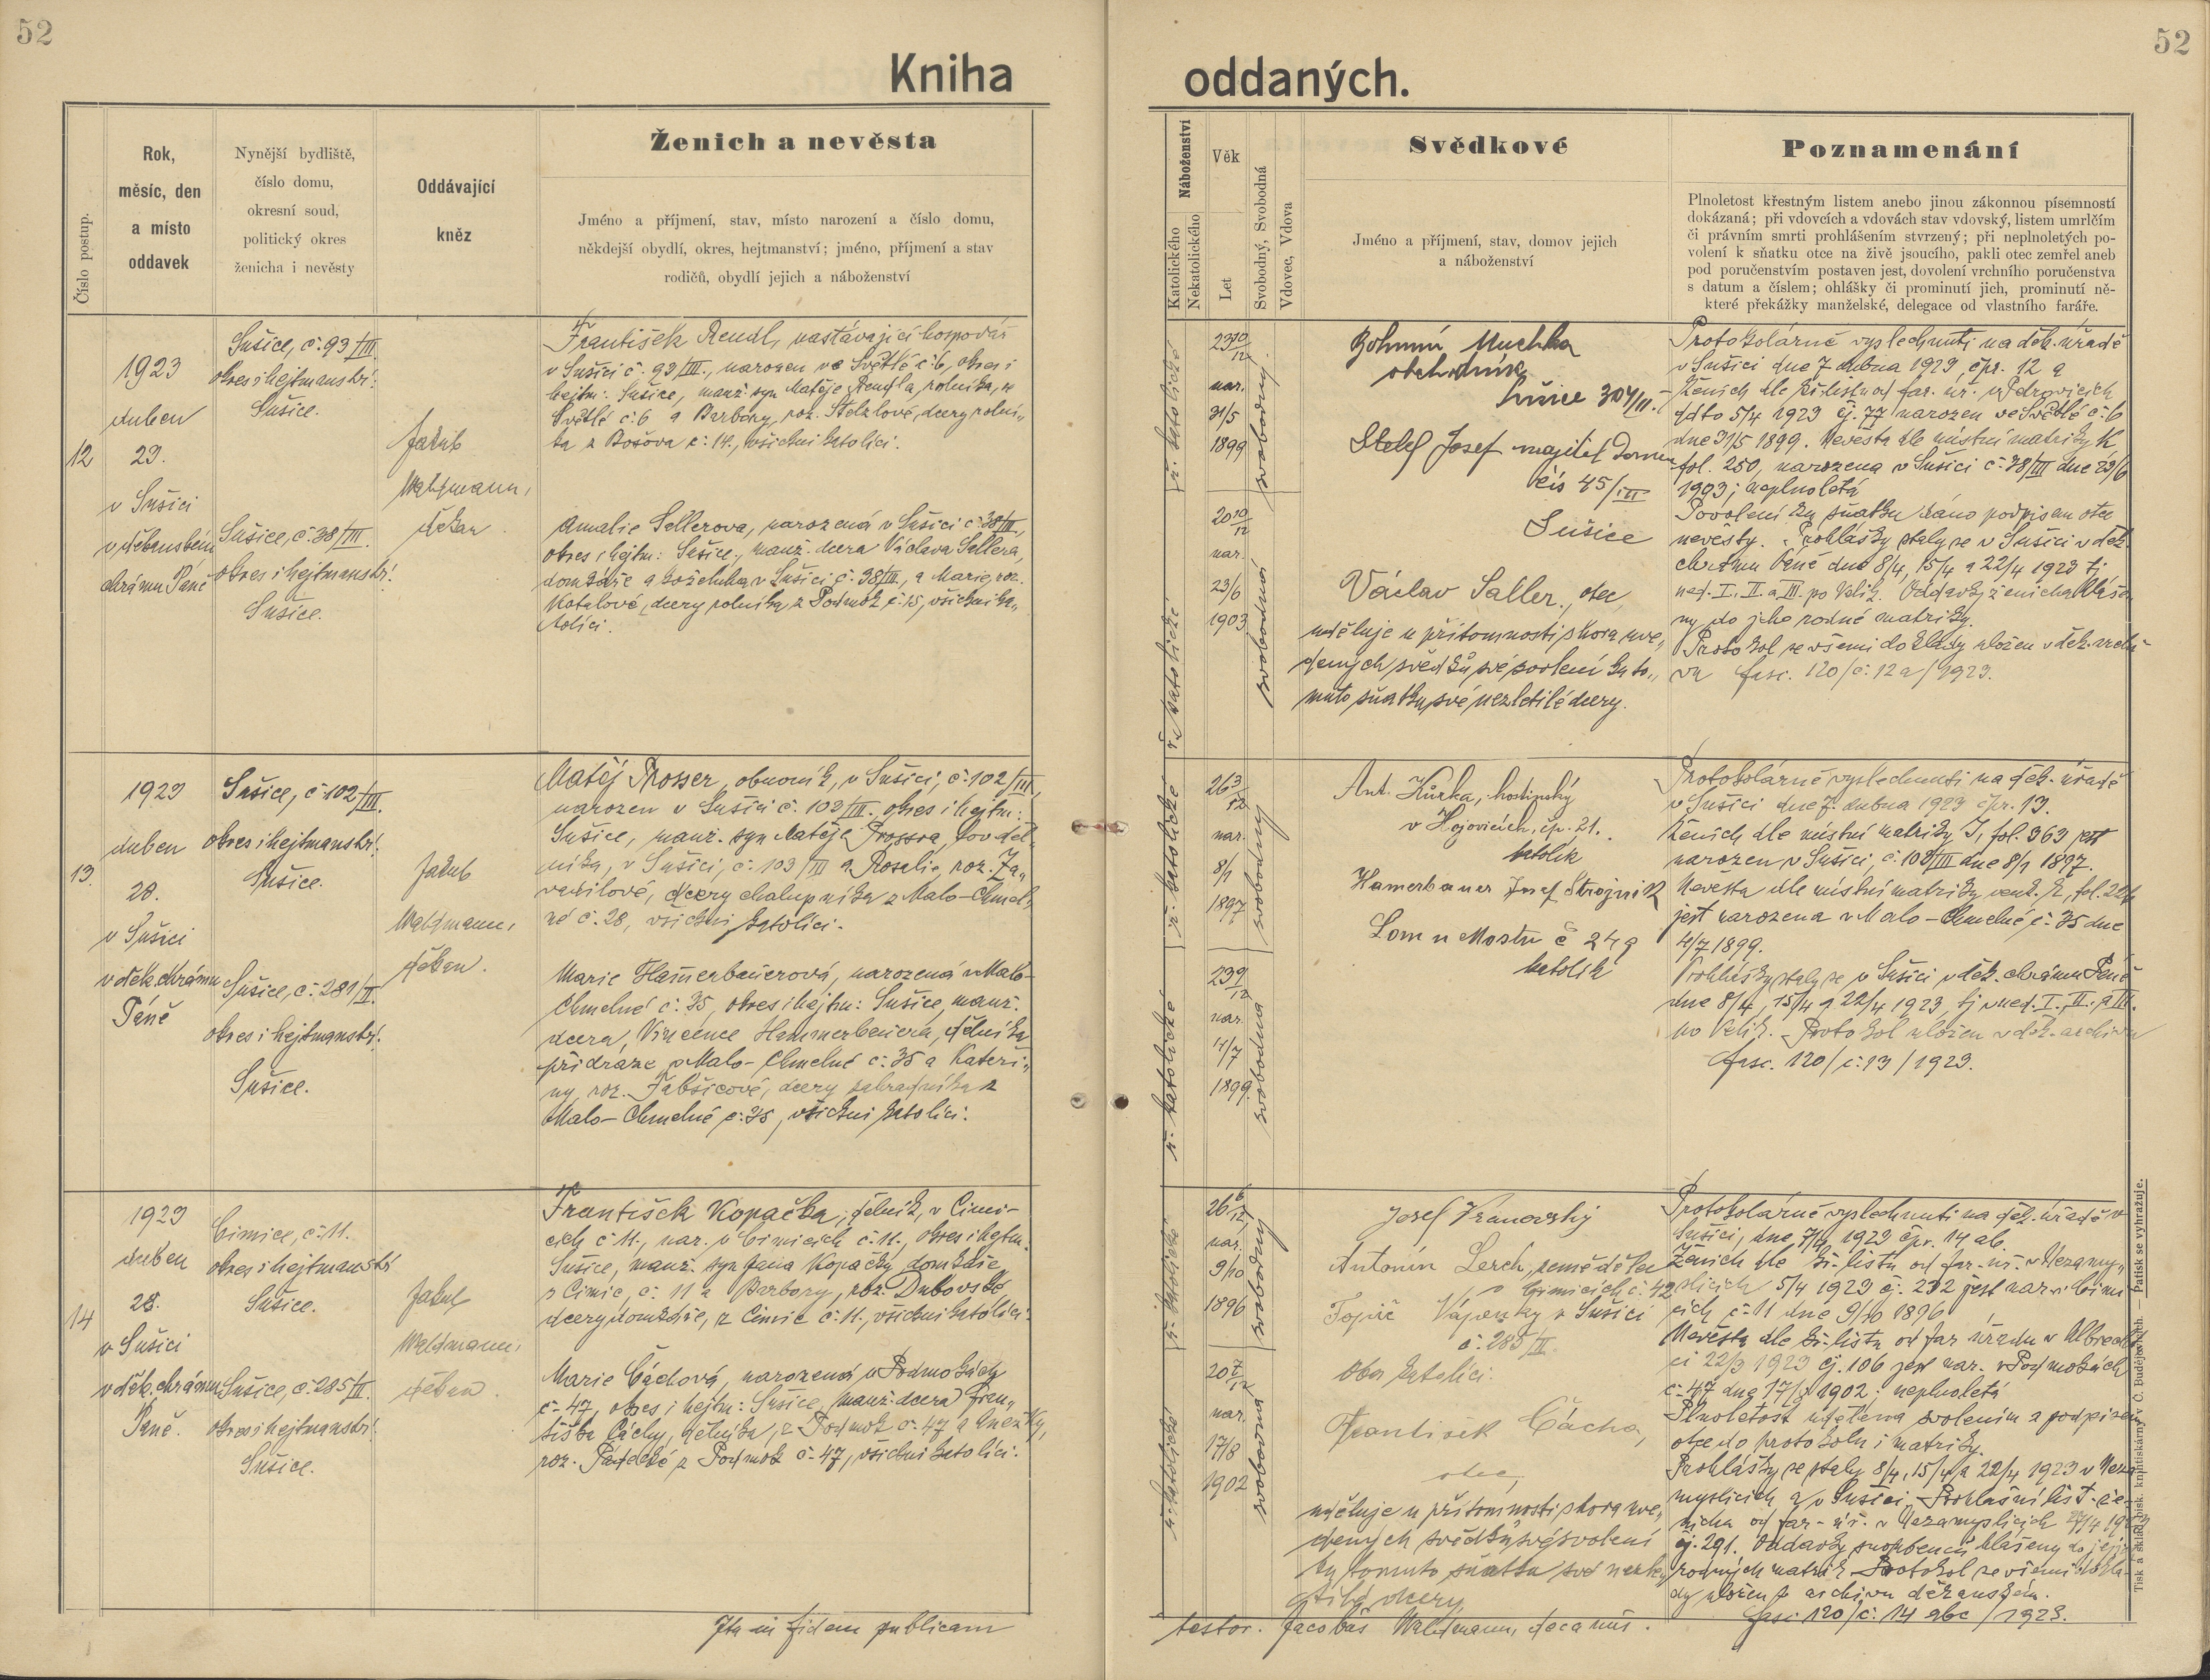 52
52
Kniha
oddaných.
Číslo postup.
Rok,
měsíc, den
a místo
oddavek
Nynější bydliště,
číslo domu,
okresní soud,
politický okres
ženicha i nevěsty
Oddávající
kněz
Ženich a nevěsta
Jméno a příjmení, stav, místo narození a číslo domu,
někdejší obydlí, okres, hejtmanství; jméno, příjmení a stav
rodičů, obydlí jejich a náboženství
Náboženství
Katolického
Nekatolického
Věk
Let
Svobodný, Svobodná
Vdovec, Vdova
Svědkové
Jméno a příjmení, stav, domov jejich
a náboženství
Poznamenání
Plnoletost křestným listem anebo jinou zákonnou písemností
dokázaná; při vdovcích a vdovách stav vdovský, listem umrlčím
či právním smrti prohlášením stvrzený; při neplnoletých po-
volení k sňatku otce na živě jsoucího, pakli otec zemřel aneb
pod poručenstvím postaven jest, dovolení vrchního poručenstva
s datum a číslem; ohlášky či prominutí jich, prominutí ně-
které překážky manželské, delegace od vlastního faráře.
12
1923
duben
23.
v Sušici
v děkanském
chrámu Páně
Sušice, č. 93/III.
okres i hejtmanství
Sušice.
Sušice, č. 38/III.
okres i hejtmanství
Sušice.
Jakub
Waldmann,
děkan.
František Rendl, nastávající hospodář
v Sušici č. 93/III., narozen ve Světlé č. 6, okres i
hejtm: Sušice, manž. syn Matěje Rendla, rolníka, z
Světlé č. 6 a Barbory, roz. Stelzlové, dcery rolní-
ka z Bošova č. 14., všichni katolíci.
Amalie Sellerova, narozená v Sušici č. 38/III.,
okres i hejtm: Sušice, manž. dcera Václava Sellera,
domkáře a koželuha v Sušici č. 38/III, a Marie, roz.
Kotalové, dcery rolníka z Podmok č. 15, všichni ka-
tolíci.
ř. katolické
ř. katolické
23 10/12
nar.
31/5
1899
20 10/12
nar.
23/6
1903
svobodný.
svobodná
Bohumil Muchka
obchodník
Sušice 304/II.
Stelzl Josef majitel domu
čís 45/III
Sušice
Václav Saller, otec,
uděluje u přítomnosti shora uve-
dených svědků své svolení ku to-
muto sňatku své nezletilé dcery.
Protokolárně vyslechnuti na děk. úřadě
v Sušici dne 7 dubna 1923 čpr. 12 a
Ženich dle kř. listu od far. úř. v Petrovicích
ddto 5/4 1923 čj. 77 narozen ve Světlé č. 6
dne 31/5 1899. Nevěsta dle místní matriky K
fol. 250, narozena v Sušici č. 38/III dne 23/6
1903; neplnoletá
Povolení ku sňatku dáno podpisem otce
nevěsty. Prohlášky staly se v Sušici v děk.
chrámu Páně dne 8/4, 15/4 a 22/4 1923 tj
ned. I., II. a III. po Velik. Oddavky ženicha hláše-
ny do jeho rodné matriky.
Protokol se všemi doklady uložen v děk. archi-
vu fasc. 120/č. 12a/1923.
13.
1923
duben
28.
v Sušici
v děk. chrámu
Páně
Sušice, č. 102/III.
okres i hejtmanství
Sušice.
Sušice, č. 281/II.
okres i hejtmanství
Sušice.
Jakub
Waldmann,
děkan.
Matěj Prosser, obuvník, v Sušici, č. 102/III,
narozen v Sušici č. 102/III. okres i hejtm:
Sušice, manž. syn Matěje Prossra, pověd-
níka, v Sušici, č. 103/III a Rosalie, roz. Za-
vadilové, dcery chalupníka z Malo-Chmel-
né č. 28, všichni katolíci.
Marie Hamerbauerová, narozená v Malo-
Chmelné č. 35, okres i hejtm: Sušice, manž.
dcera, Vincence Hammerbauera, dělníka
při dráze, v Malo-Chmelné č. 35 a Kateři-
ny, roz. Jabšicové, dcery zahradníka z
Malo-Chmelné č. 35, všichni katolíci.
ř. katolické
ř. katolické
26 3/12
nar.
8/1
1897
23 9/12
nar.
4/7
1899
svobodný
svobodná
Ant. Kůrka, hostinský
v Hojovicích, čp. 21.
katolík
Hamerbauer Josef Strojník
Lom u Mostu č 249
katolík
Protokolárně vyslechnuti na děk. úřadě
v Sušici dne 7. dubna 1923 čpr. 13.
Ženich dle místní matriky J, fol. 363 jest
narozen v Sušici, č. 103/III dne 8/1 1897.
Nevěsta dle místní matriky venk. K, fol. 224
jest narozena v Malo-Chmelné č. 35 dne
4/7 1899.
Prohlášky staly se v Sušici v děk. chrámu Páně
dne 8/4, 15/4 a 22/4 1923, tj v ned. I., II. a III.
po Velik. Protokol uložen v děk. archivu
fasc. 120/č. 13/1923.
14
1923
duben
28.
v Sušici
v děk. chrámu
Páně.
Čimice, č. 11.
okres i hejtmanství
Sušice.
Sušice, č. 285/II.
okres i hejtmanství
Sušice.
Jakub
Waldmann,
děkan.
František Kopačka, dělník, v Čimi-
cích č. 11., nar. v Čimicích č. 11., okres i hejtm.
Sušice, manž. syn Jana Kopačky, domkáře,
z Čimic, č. 11 a Barbory, roz. Dubovské,
dcery domkáře, z Čimic č. 11., všichni katolíci.
Marie Čáchová, narozená v Podmokách
č. 47, okres i hejtm: Sušice, manž. dcera Fran-
tiška Čáchy, dělníka, z Podmok č. 47 a Anežky,
roz. z Podmok č. 47, všichni katolíci.
ř. katolické
ř. katolické
26 6/12
nar.
9/10
1896
20 7/12
nar.
17/8
1902
svobodný
svobodná
Josef Vranovský
Antonín Lerch, zemědělec
v Čimicích č. 42
Topič Vápenky v Sušici
č. 285/II.
oba katolíci.
František Čácha,
otec,
uděluje u přítomnosti shora uve-
dených svědků své svolení
ku tomuto sňatku své nezle-
tilé dcery
Protokolárně vyslechnuti na děk. úřadě v
Sušici, dne 7/4 1923 čpr. 14 ab.
Ženich dle kř. listu od far. úř. v Nezamy-
slicích 5/4 1923 čj. 232 jest nar. v Čimi
cích č. 11 dne 9/10 1896
Nevěsta dle kř. listu od far úřadu v Albrech-
ci 22/3 1923 čj. 106 jest nar. v Podmokách
č. 47 dne 17/8 1902; neplnoletá
Plnoletost udělena svolením a podpisem
otce do protokolu i matriky.
Prohlášky se staly 8/4, 15/4 a 22/4 1923 v Neza-
myslicích a v Sušici. Prohlašní list že-
nicha od far. úř. v Nezamyslicích
čj. 291. Oddavky snoubenců hlášeny do jejich
rodných matrik Protokol se všemi dokla-
dy uložen v archivu děkanském.
fasc. 120/č. 14 abc/1923.
Ita in fidem publicam
testor. Jacobus Waldmann, decanus.
Tisk a sklad bisk. knihtiskárny v Č. Budějovicích. — Patisk se vyhražuje.